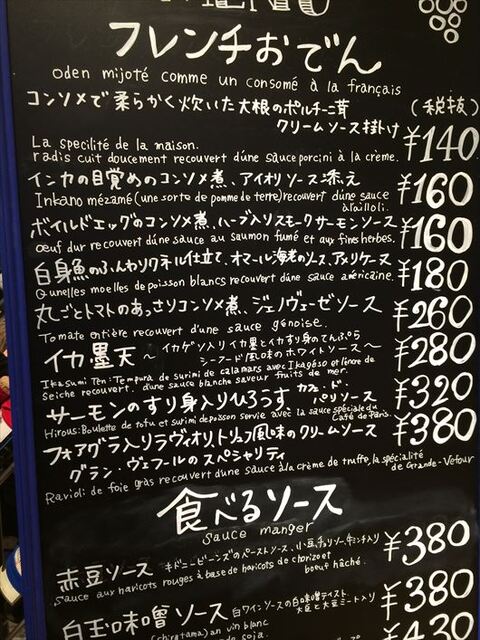 MENU
フレンチおでん
oden mijoté comme un consomé à la français
コンソメで柔らかく炊いた大根のポルチーニ茸
クリームソース掛け
(税抜)
¥140
La specilité de la maison.
radis cuit doucement recouvert d'une sauce porcini à la crème.
インカの目覚めのコンソメ煮、アイオリソース添え
¥160
Inkano mézamé (une sorte de pomme de terre) recouvert d'une sauce
à l'ailloli.
ボイルドエッグのコンソメ煮、ハーブ入りスモークサーモンソース
¥160
œuf dur recouvert d'une sauce au saumon fumé et aux fines herbes.
白身魚のふんわりクネル仕立て、オマール海老のソース、アメリケーヌ
¥180
Qunelles moelles de poisson blancs recouvert d'une sauce américaine.
丸ごとトマトのあっさりコンソメ煮、ジェノヴェーゼソース
¥260
Tomate entière recouvert d'une sauce génoise.
イカ墨天～イカゲソ入りイカ墨とイカすり身のてんぷら
シーフード風味のホワイトソース～
¥280
Ikasumi Ten: Tempura de surimi de calamars avec Ikagéso et l'encre de
Seiche recouvert d'une sauce blanche saveur fruits de mer.
サーモンのすり身入りひろうす カフェ・ド・
パリソース
¥320
Hirous: Boulette de tofu et surimi de poisson servie avec la sauce spéciale du
Café de Paris.
フォアグラ入りラヴィオリ、トリュフ風味のクリームソース
¥380
グラン・ヴェフールのスペシャリティ
Ravioli de foie gràs recouvert d'une sauce à la crème de truffe, la spécialité
de Grande-Vefour
食べるソース
sauce manger
赤豆ソース
キドニービーンズのペーストソース、小豆、チョリソー、牛ミンチ入り
¥380
sauce aux haricots rouges à base de haricots de chorizo et
bœuf hâché.
白玉味噌ソース
白ワインソースの白味噌テイスト、
大豆と大豆ミート入り
¥380
(shiratama) au vin blanc
de soja.
¥430